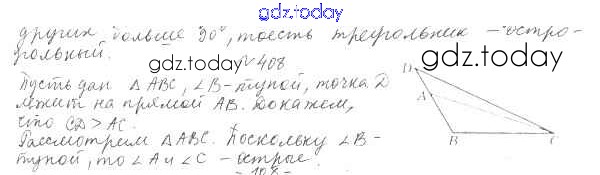 gdz.today
других больше 90°, тоесть треугольник – остро-
гольный.
gdz.today
№408
Пусть дан △ ABC, ∠B – тупой, точка D
лежит на прямой AB. Докажем,
что CD > AC.
Рассмотрим △ABC. Поскольку ∠B –
тупой, то ∠A и ∠C – острые.
D
A
B
C
gdz.today
gdz.today
- 108 -